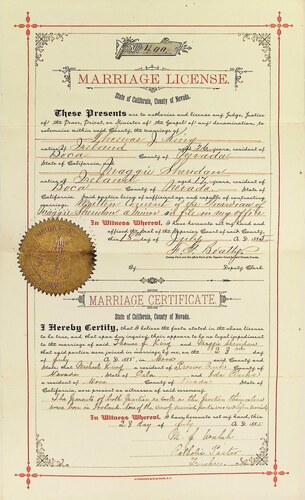 400
MARRIAGE LICENSE.
State of California, County of Nevada.
These Presents are to authorize and license any Judge, Justice
of the Peace, Priest, or Minister of the Gospel of any denomination, to
solemnize within said County, the marriage of
Thomas J. King
native of Ireland aged 26 years, resident of
Boca County of Nevada State
of California, and
Maggie Sheridan
native of Ireland aged 17 years, resident of
Boca County of Nevada State of
California. Said parties being of sufficient age and capable of contracting
marriage. Written consent of the
Maggie Sheridan a minor on file in my office
In Witness Whereof, I have hereunto set my hand and
affixed the Seal of the Superior Court of said County,
this day of July A.D. 1885
By Deputy Clerk.
MARRIAGE CERTIFICATE.
State of California, County of Nevada.
I Hereby Certify, that I believe the facts stated in the above license
to be true, and that upon due inquiry there appears to be no legal impediment
to the marriage of said Thomas J. King and Maggie Sheridan
that said parties were joined in marriage by me on the 28
day of July A.D. 1885 in Boca County and
State; that Michael King a resident of County of
Nevada State of and
a resident of Boca County of Nevada State of
California, were present as witnesses of said ceremony.
The parents of both parties as well as the parties themselves
were born in Ireland.
In Witness Whereof, I have hereunto set my hand, this
28 day of July A.D. 1885
Catholic Pastor
Truckee